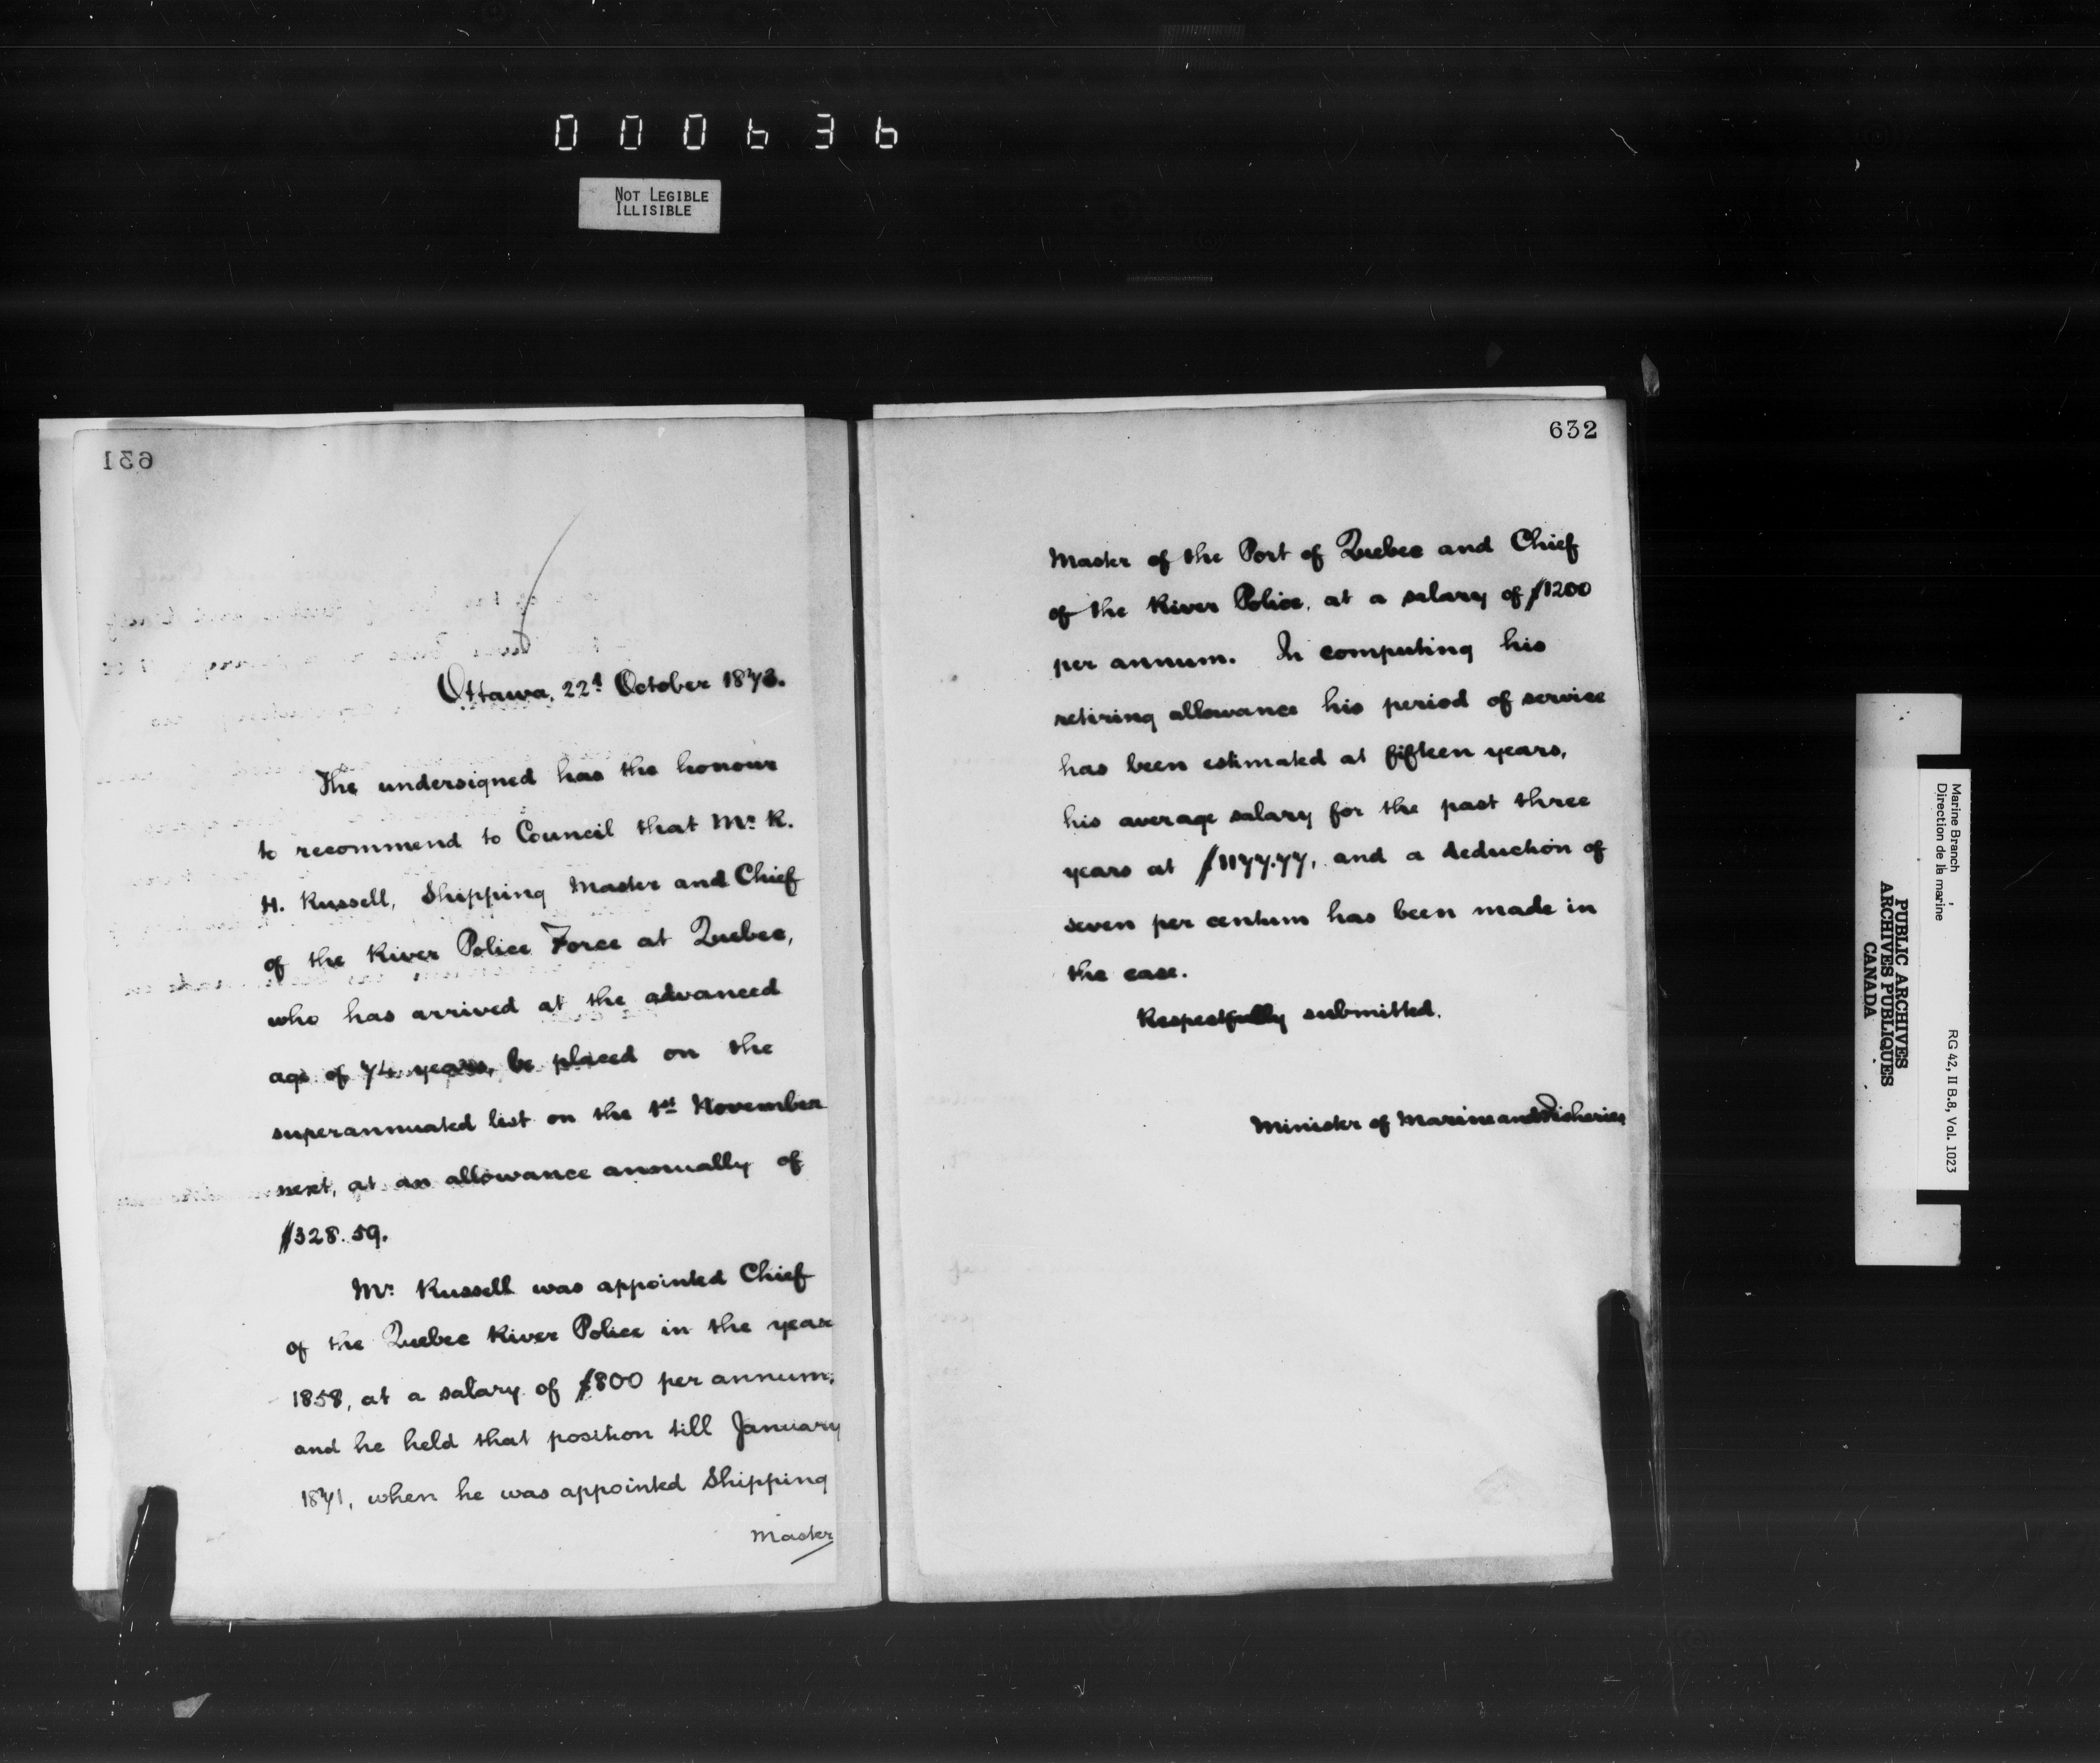 000636
NOT LEGIBLE
ILLISIBLE
631
Ottawa, 22d October 1873.
The undersigned has the honour
to recommend to Council that Mr. R.
H. Russell, Shipping Master and Chief
of the River Police Force at Quebec,
who has arrived at the advanced
age of 74 years, be placed on the
superannuated list on the 1st November
next, at an allowance annually of
$328.59.
Mr. Russell was appointed Chief
of the Quebec River Police in the year
1858, at a salary of $800 per annum,
and he held that position till January
1871, when he was appointed Shipping
Master
632
Master of the Port of Quebec and Chief
of the River Police, at a salary of $1200
per annum. In computing his
retiring allowance his period of service
has been estimated at fifteen years,
his average salary for the past three
years at $1177.77, and a deduction of
seven per centum has been made in
the case.
Respectfully submitted.
Minister of Marine and Fisheries
Marine Branch
Direction de la marine
RG 42, II B.8, Vol. 1023
PUBLIC ARCHIVES
ARCHIVES PUBLIQUES
CANADA